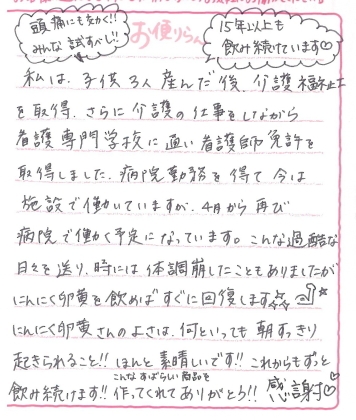 頭痛にも効く!!
みんな試すべし!!
お便りらん
15年以上も
飲み続けています♡
私は、子供3人産んだ後、介護福祉士
を取得、さらに介護の仕事をしながら
看護専門学校に通い看護師免許を
取得しました。病院勤務を得て今は
施設で働いていますが、4月から再び
病院で働く予定になっています。こんな過酷な
日々を送り、時には体調崩したこともありましたが
にんにく卵黄を飲めばすぐに回復します☆☆
にんにく卵黄さんのよさは、何といっても朝すっきり
起きられること!!ほんと素晴しいです!!これからもずっと
飲み続けます!!こんなすばらしい商品を作ってくれてありがとう!!感謝♡